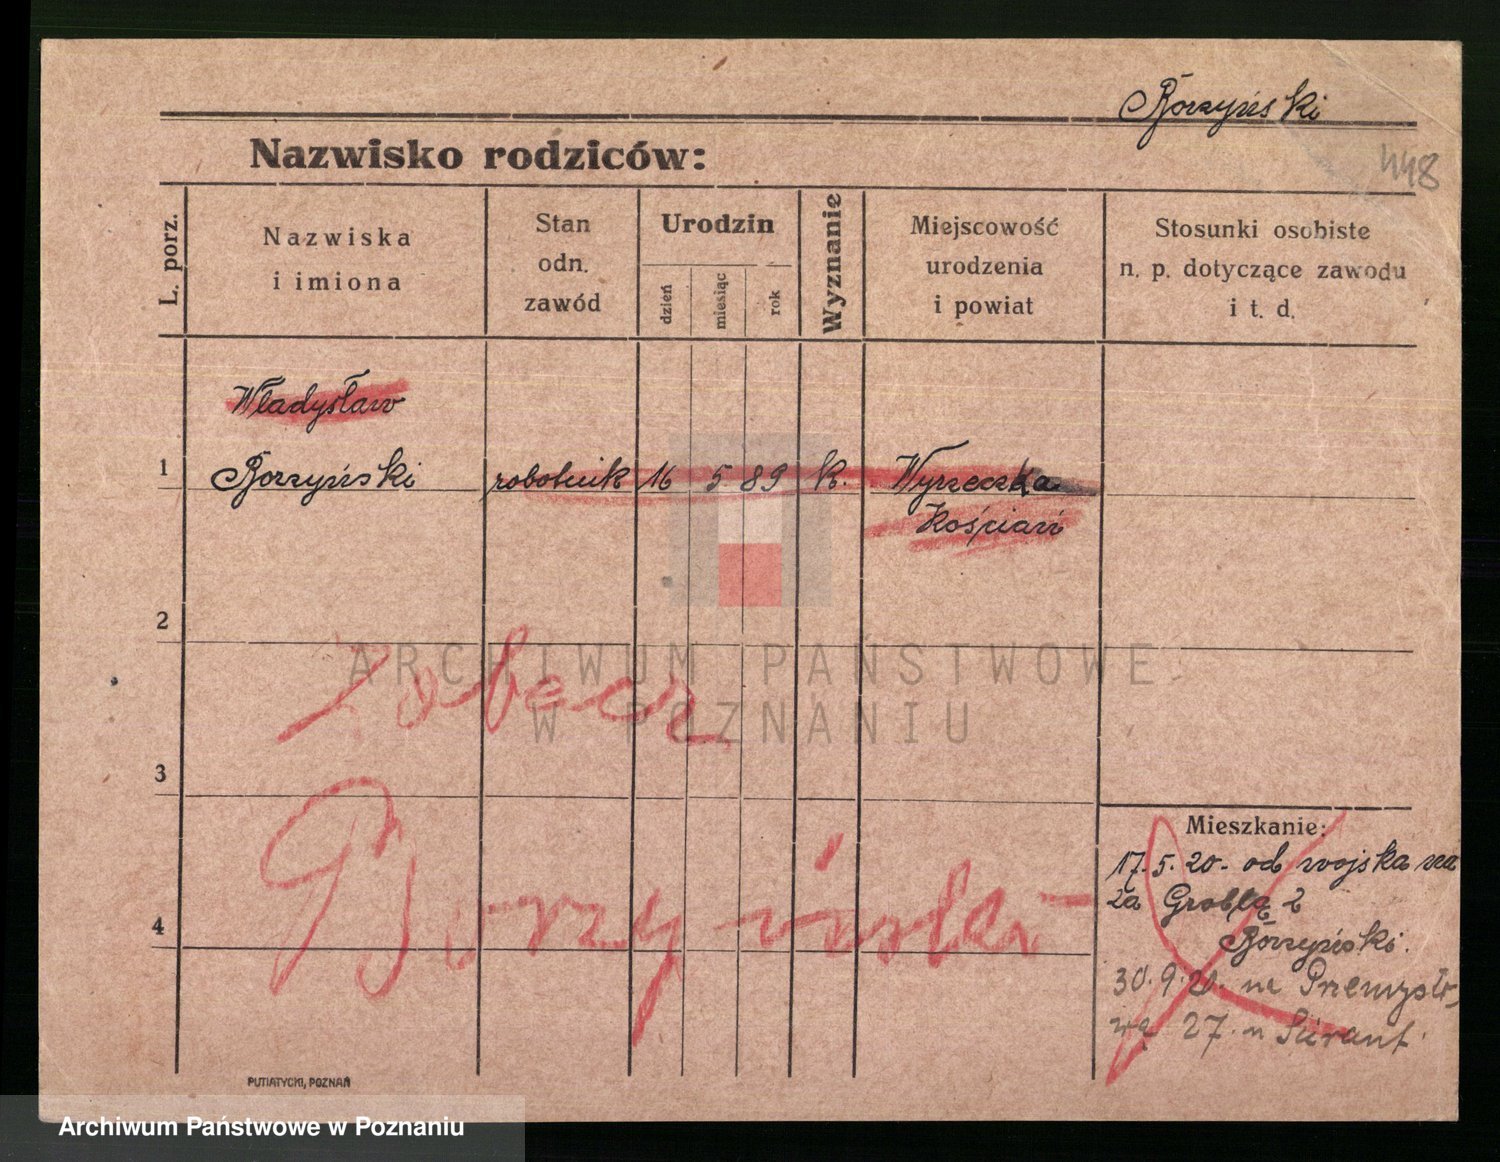 Borzyński
448
Nazwisko rodziców:
L. porz.
Nazwiska
i imiona
Stan
odn.
zawód
Urodzin
dzień
miesiąc
rok
Wyznanie
Miejscowość
urodzenia
i powiat
Stosunki osobiste
n. p. dotyczące zawodu
i t. d.
Władysław
1
Borzyński robotnik 16 5 89 k. Wyrzeczka
Kościan
2
zobacz
ARCHIWUM PAŃSTWOWE
W POZNANIU
3
Mieszkanie:
17.5.20. od wojska na
2a Groblą 2
Borzyński.
4
Borzyński
30.9.20. na Przemysło
wą 27. n
PUTIATYCKI, POZNAŃ
Archiwum Państwowe w Poznaniu